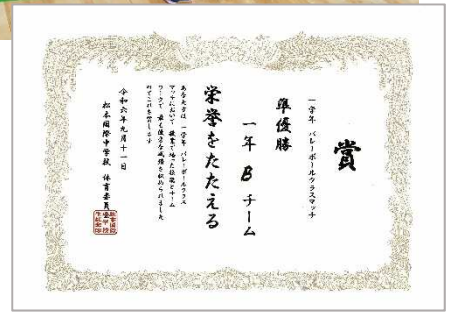 賞
一学年 バレーボールクラスマッチ
準優勝
一年 B チーム
栄誉をたたえる
あなた方は 一学年バレーボールクラス
マッチにおいて 授業で培った技能とチーム
ワークで 最も優秀な成績を収められました
のでこれを賞します
令和六年九月十一日
松本国際中学校 体育委員